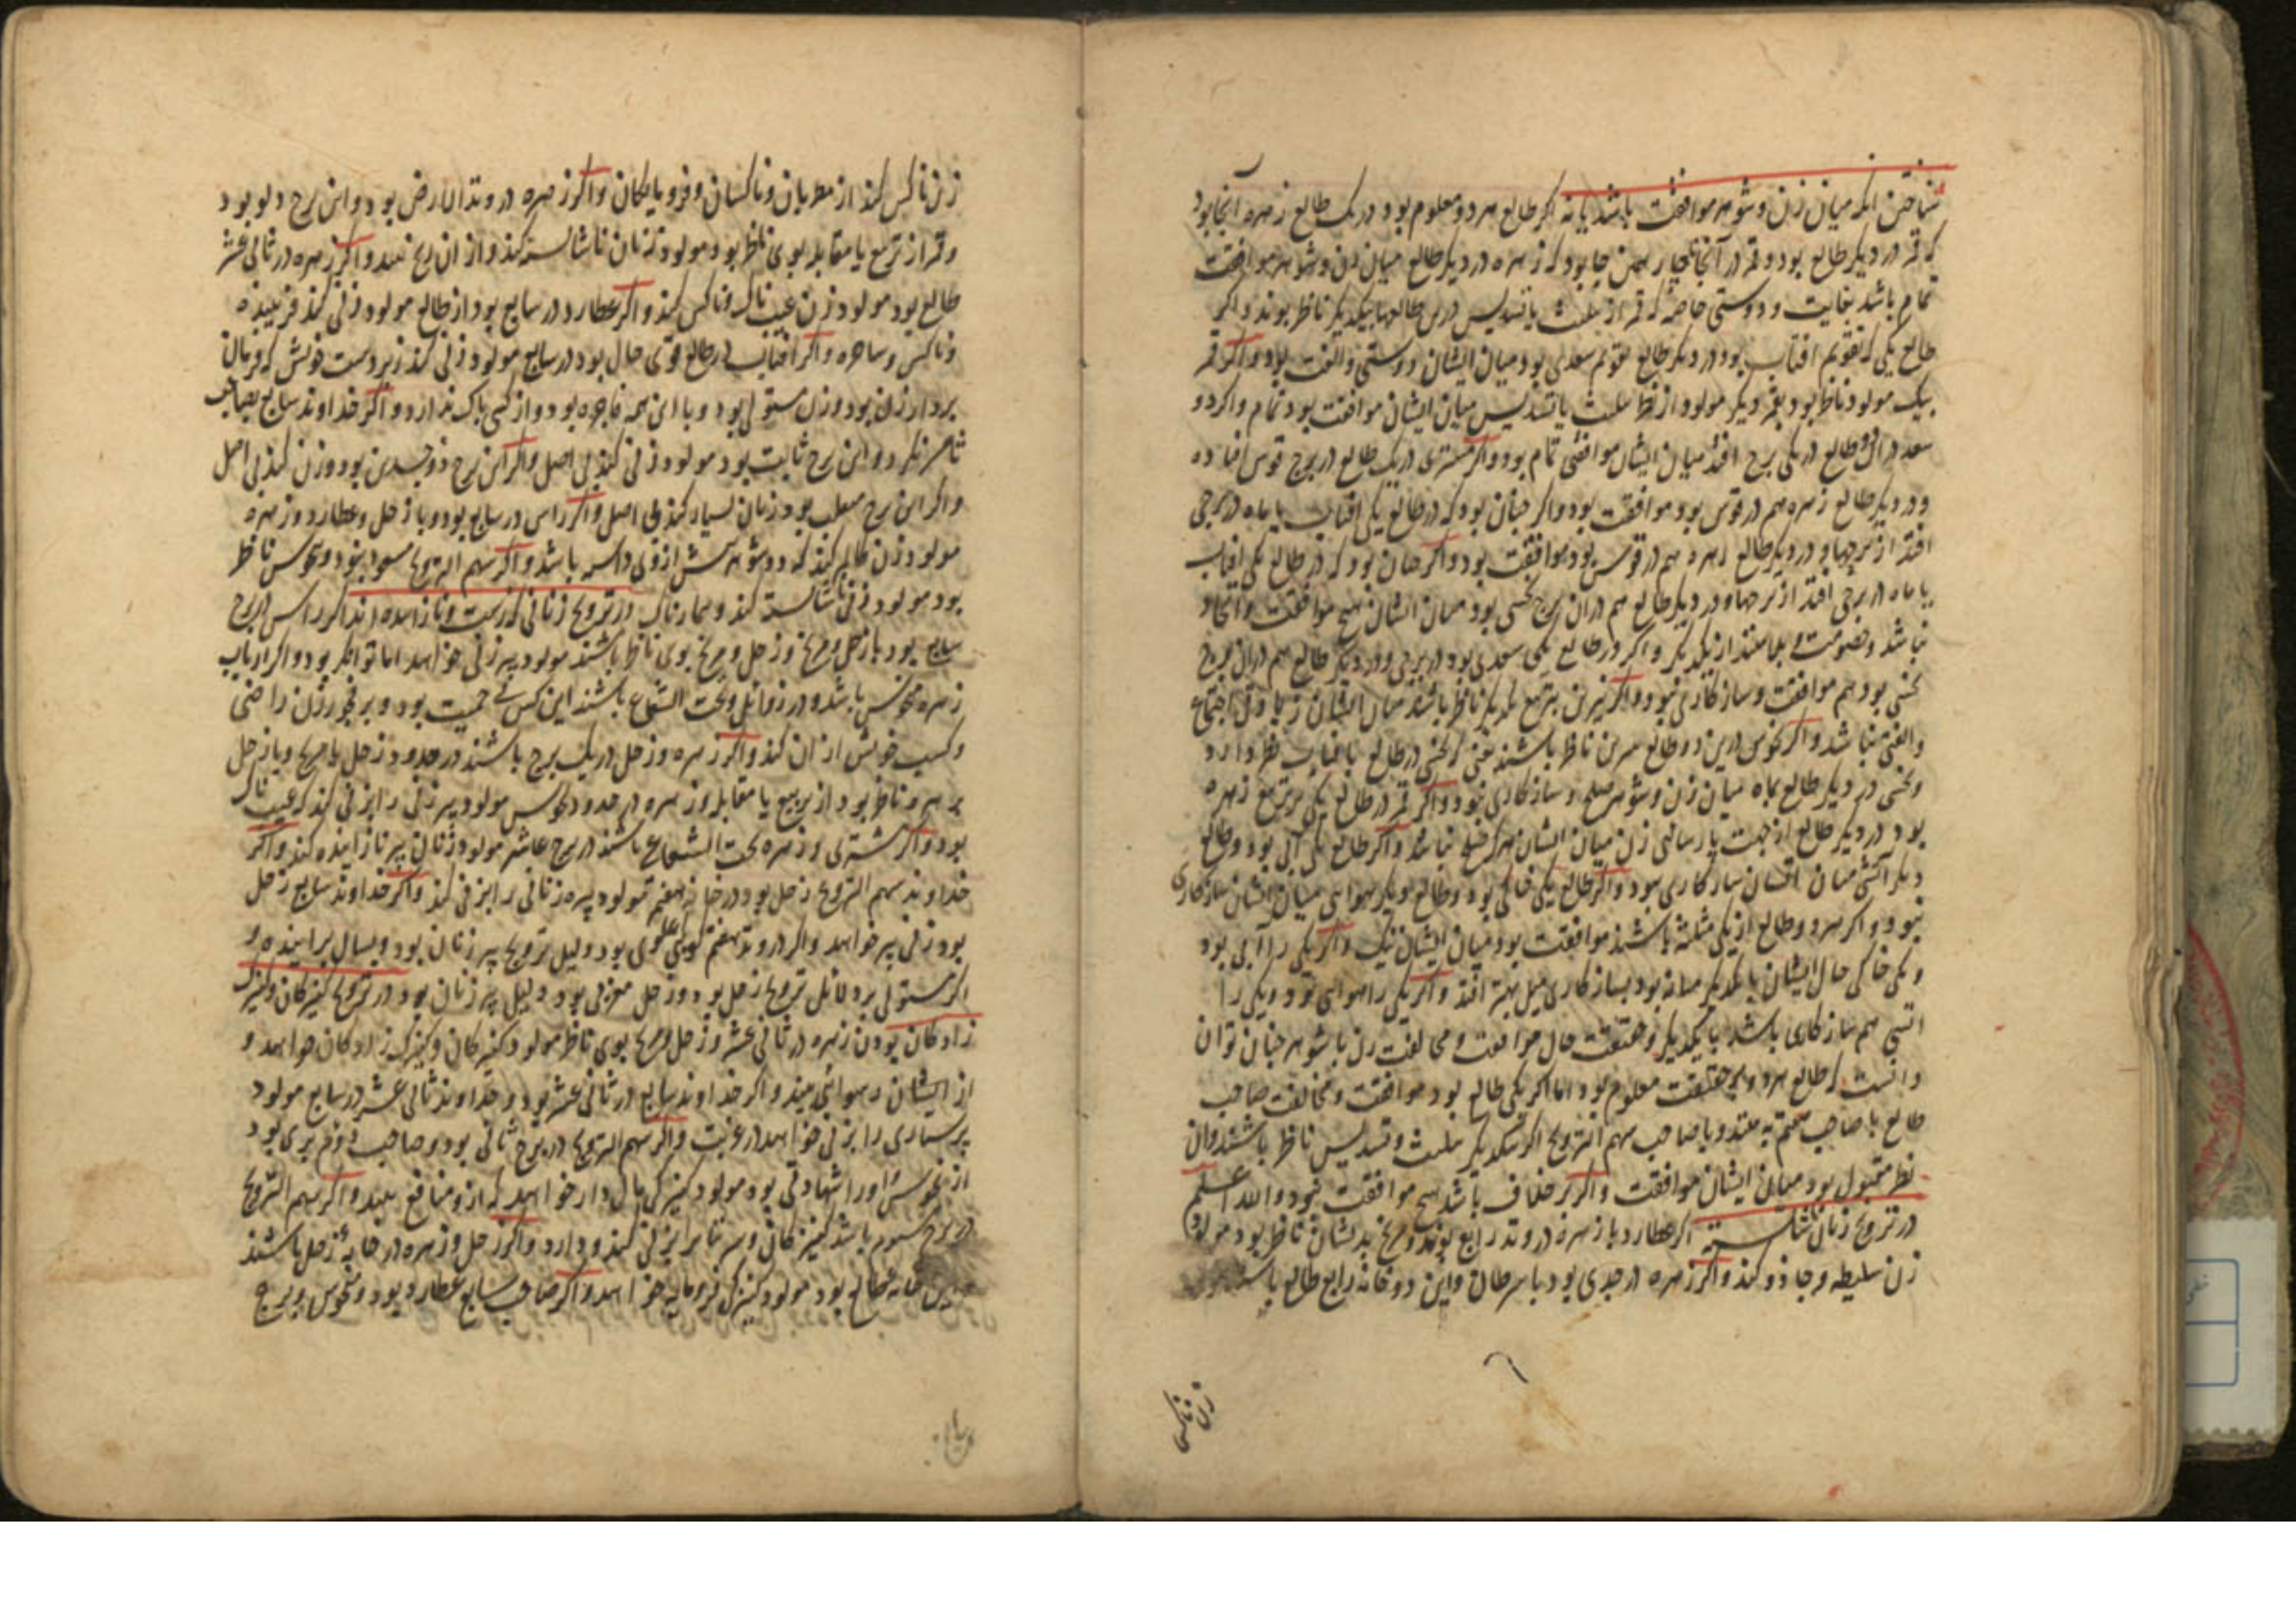 شناختن انکه میان زن و شوهر موافقت باشد یا نه اکر طالع هر دو معلوم بود در یک طالع زهره آنجا بود
که قمر در دیکر طالع بود و قمر در آنجا همچنین جا بود که زهره در دیکر طالع میان زن و شوهر موافقت
تمام باشد بغایت و دوستی خاصه که قمر از تثلیث یا تسدیس درین طالعها بیکدیکر ناظر بوند و اکر
طالع یکی که تقویم افتاب بود در دیکر طالع تقویم سعدی بود میان ایشان دوستی و الفت بود و اکر قمر
بیک مولود ناظر بود بقمر دیکر مولود از نظر تثلیث یا تسدیس میان ایشان موافقت بود تمام و اکر دو
سعد در آن دو طالع در یکی برج افتد میان ایشان موافقتی تمام بود و اکر مشتری در یک طالع در برج قوس افتاده
و در دیکر طالع زهره هم در قوس بود موافقت بود و اکر چنان بود که در طالع یکی افتاب یا ماه در برجی
افتد از برجها و در دیکر طالع زهره هم در قوس بود موافقت بود و اکر چنان بود که در طالع یکی افتاب
یا ماه در برجی افتد از برجها و در دیکر طالع هم در ان برج نحسی بود میان ایشان هیچ موافقت و اتحاد
نباشد و خصومت و بلا بینند از یکدیکر و اکر در طالع یکی سعدی بود در برجی و در دیکر طالع هم در ان برج
نحسی بود هم موافقت و سازکاری نبود و اکر نیرین بتربیع یکدیکر ناظر باشند میان ایشان زیادتی اجتماع
و الفتی نباشد و اکر نحوس درین دو طالع بنیرین ناظر باشند یعنی که نحسی در طالع بافتاب نظر دارد
و نحسی در دیکر طالع بماه میان زن و شوهر صلح و سازکاری نبود و اکر قمر در طالع یکی بر تربیع زهره
بود در دیکر طالع از جهت پارسائی زن میان ایشان هرکز صلح نباشد و اکر طالع یکی آبی بود و طالع
دیکر آتشی میان ایشان سازکاری نبود و اکر طالع یکی خاکی بود و طالع دیکر هوایی میان ایشان سازکاری
نبود و اکر هر دو طالع از یکی مثلثه باشند موافقت بود میان ایشان نیک و اکر یکی را آبی بود
و یکی خاکی حال ایشان با یکدیکر میانه بود بسازکاری میل بهتر افتد و اکر یکی را هوایی بود و یکی را
اتشی هم سازکاری باشد با یکدیکر و حقیقت حال موافقت و مخالفت زن با شوهر چنان توان
دانست که طالع هر دو بحقیقت معلوم بود اما اکر یکی طالع بود موافقت و مخالفت صاحب
طالع با صاحب هفتم بینند و با صاحب سهم التزویج اکر بیکدیکر تثلیث و تسدیس ناظر باشند و ان
نظر مقبول بود میان ایشان موافقت و اکر بر خلاف باشد هیچ موافقت نبود و الله اعلم
در تزویج زنان ناشایسته اکر عطارد با زهره در وتد رابع بوند و مریخ بدیشان ناظر بود مولود
زن سلیطه و جادو کند و اکر زهره در جدی بود با سرطان و این دو خانه رابع طالع باشند
زن ناکس
زن ناکس کند از مطربان و ناکسان و فرومایکان و اکر زهره در وتد الارض بود و این برج دلو بود
و قمر از تربیع یا مقابله بوی ناظر بود مولود زنان ناشایسته کند و از ان رنج بیند و اکر زهره در ثانی عشر
طالع بود مولود زن عیبناک و ناکس کند و اکر عطارد در سابع بود از طالع مولود زنی کند فریبنده
و ناکس و ساحره و اکر افتاب در طالع قوی حال بود در سابع مولود زنی کند زبردست خویش که فرمان
بردار زن بود و زن مستولی بود و با این همه فاجره بود و از کسی باک ندارد و اکر خداوند سابع بصاحب
ناظر نکردد و این برج ثابت بود مولود زنی کند بی اصل و اکر این برج ذوجسدین بود و زن کند بی اصل
و اکر این برج منقلب بود زنان بسیار کند بی اصل و اکر راس در سابع بود و با زحل و عطارد و زهره
مولود زن ظالم کند که دو شوهر پیش از وی داشته باشد و اکر سهم التزویج مسعود نبود و نحوس ناظر
بود مولود زنی ناشایسته کند و بیمارناک در تزویج زنانی که زشت و نازاینده اند اکر راس در برج
سابع بود با زحل و مریخ و زحل و مریخ بوی ناظر باشند مولود پیر زنی خواهد اما توانکر بود و اکر ارباب
زهره منحوس باشد و در زوایل و تحت الشعاع باشند این کس بی حمیت بود و بر فجور زن راضی
و کسب خویش از ان کند و اکر زهره و زحل در یک برج باشند در حدود زحل یا مریخ و یا زحل
بزهره ناظر بود از تربیع یا مقابله و زهره در حدود نحوس مولود پیر زنی را بزنی کند که عیبناک
بود و اکر مشتری و زهره تحت الشعاع باشند در برج عاشر مولود زنان پیر نازاینده کند و اکر
خداوند سهم التزویج زحل بود در خانه هفتم مولود پیره زنانی را بزنی کند و اکر خداوند سابع زحل
بود زنی پیر خواهد و اکر در وتد هفتم کوکبی علوی بود دلیل تزویج پیر زنان بود و بسال برآینده و
اکر مستولی بر دلایل تزویج زحل بود و زحل مغربی بود دلیل پیر زنان بود در تزویج کنیزکان و کنیزک
زادکان بودن زهره در ثانی عشر و زحل و مریخ بوی ناظر مولود کنیزکان و کنیزک زادکان خواهد و
از ایشان رسوایی بیند و اکر خداوند سابع در ثانی عشر بود و خداوند ثانی عشر در سابع مولود
پرستاری را بزنی خواهد در غربت و اکر سهم التزویج در برج ثانی بود و صاحب دوم بری بود
از نحوس و او را شهادتی بود مولود کنیزکی مال دار خواهد که ازو منافع بیند و اکر سهم التزویج
در برج سوم باشد کنیزکان و سریتان را بزنی کند و دارد و اکر زحل و زهره در خانه زحل باشند
خانه طالع بود مولود کنیزکی فرومایه خواهد و اکر صاحب سابع عطارد بود و منحوس و برج